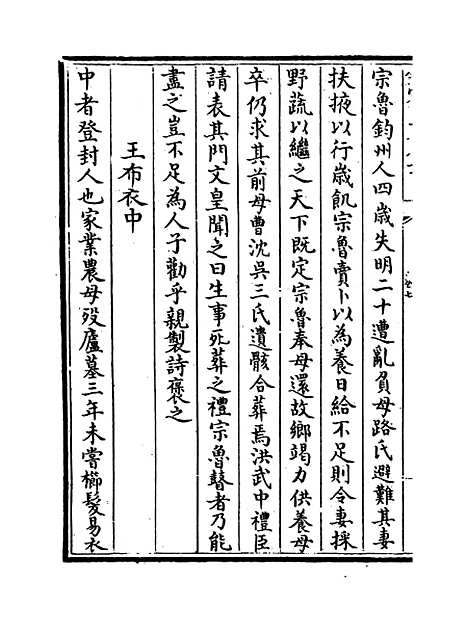 宗魯鈞州人四歲失明二十遭亂負母路氏避難其妻
扶掖以行歲飢宗魯賣卜以為養日給不足則令妻採
野蔬以繼之天下既定宗魯奉母還故鄉竭力供養母
卒仍求其前母曹沈吳三氏遺骸合葬焉洪武中禮臣
請表其門文皇聞之曰生事死葬之禮宗魯瞽者乃能
盡之豈不足為人子勸乎親製詩褒之
王布衣中
中者登封人也家業農母歿廬墓三年未嘗櫛髮易衣